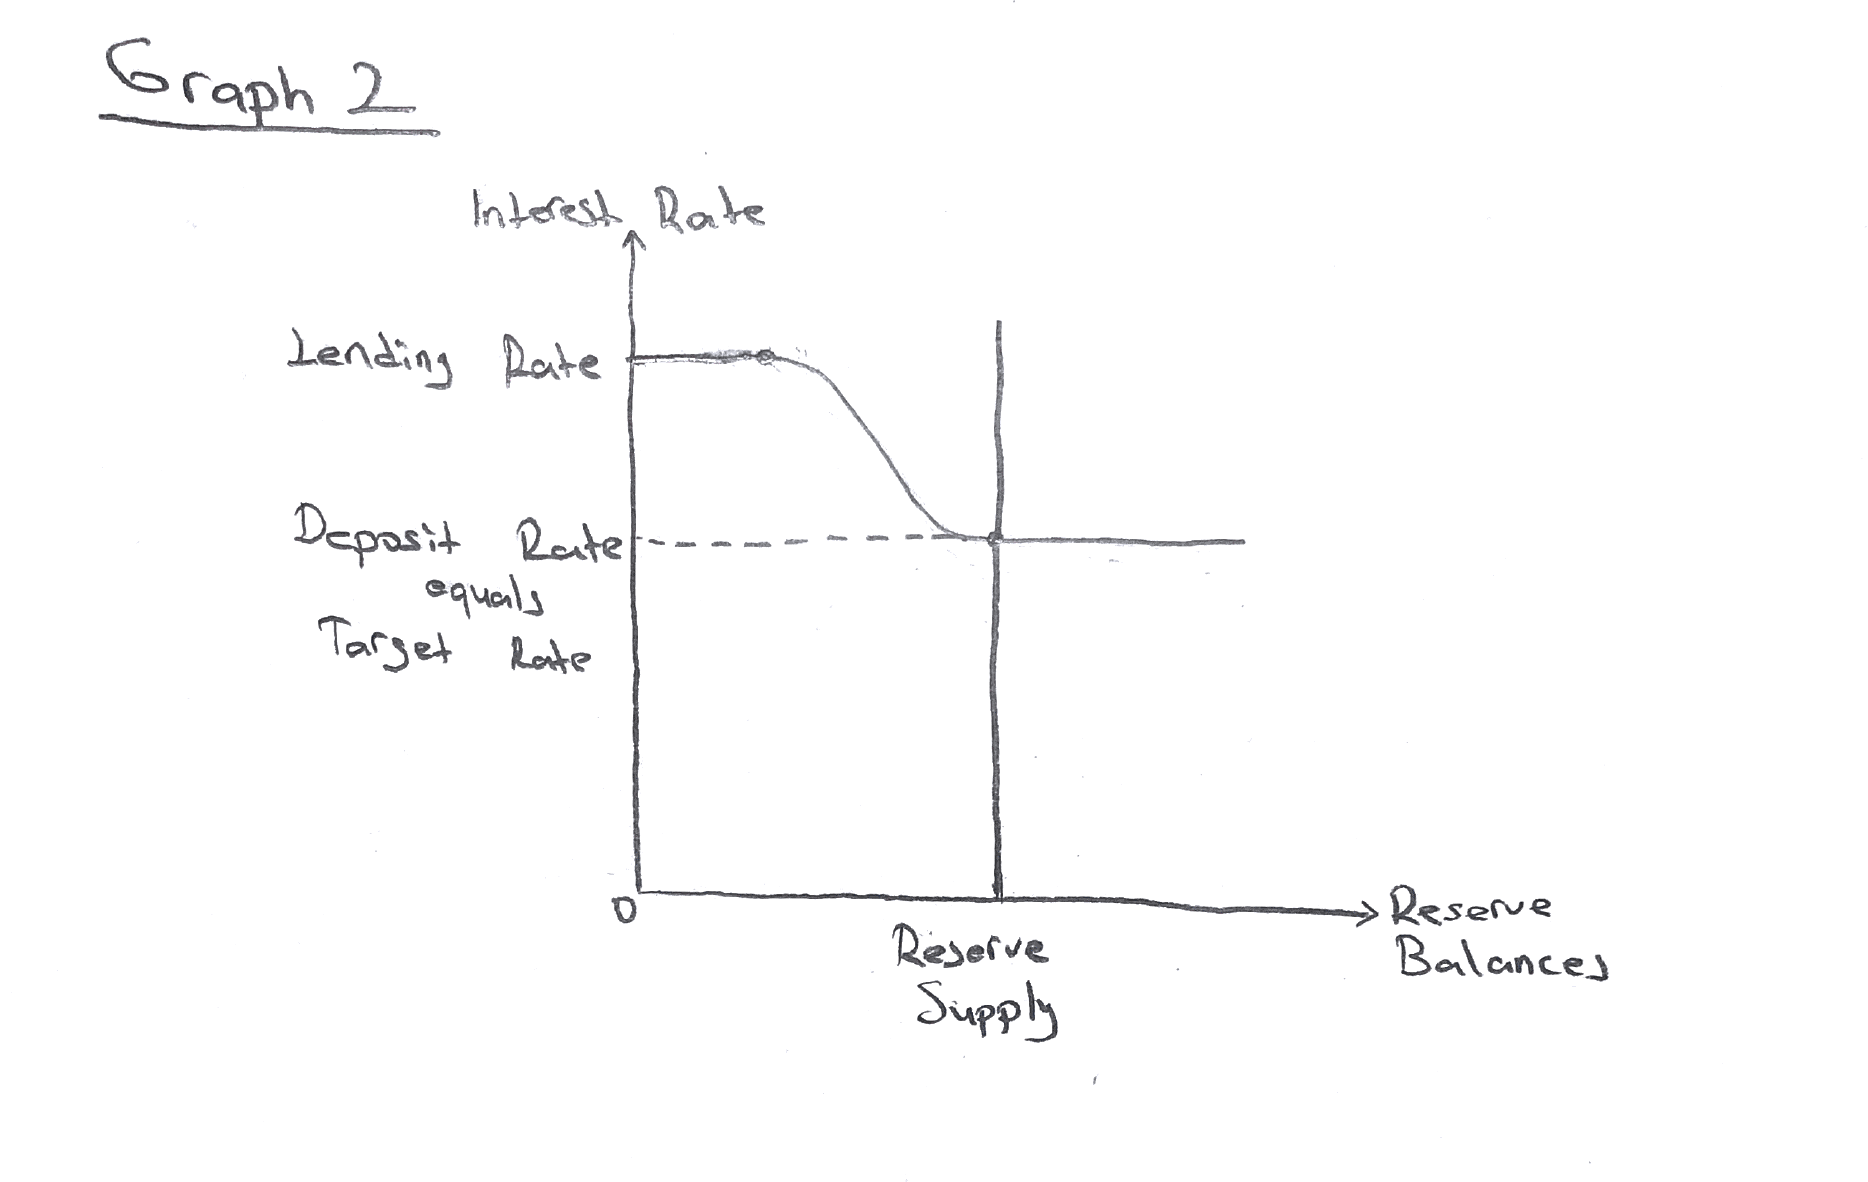 Graph 2
Interest Rate
Lending Rate
Deposit Rate
equals
Target Rate
0
Reserve
Supply
Reserve
Balances